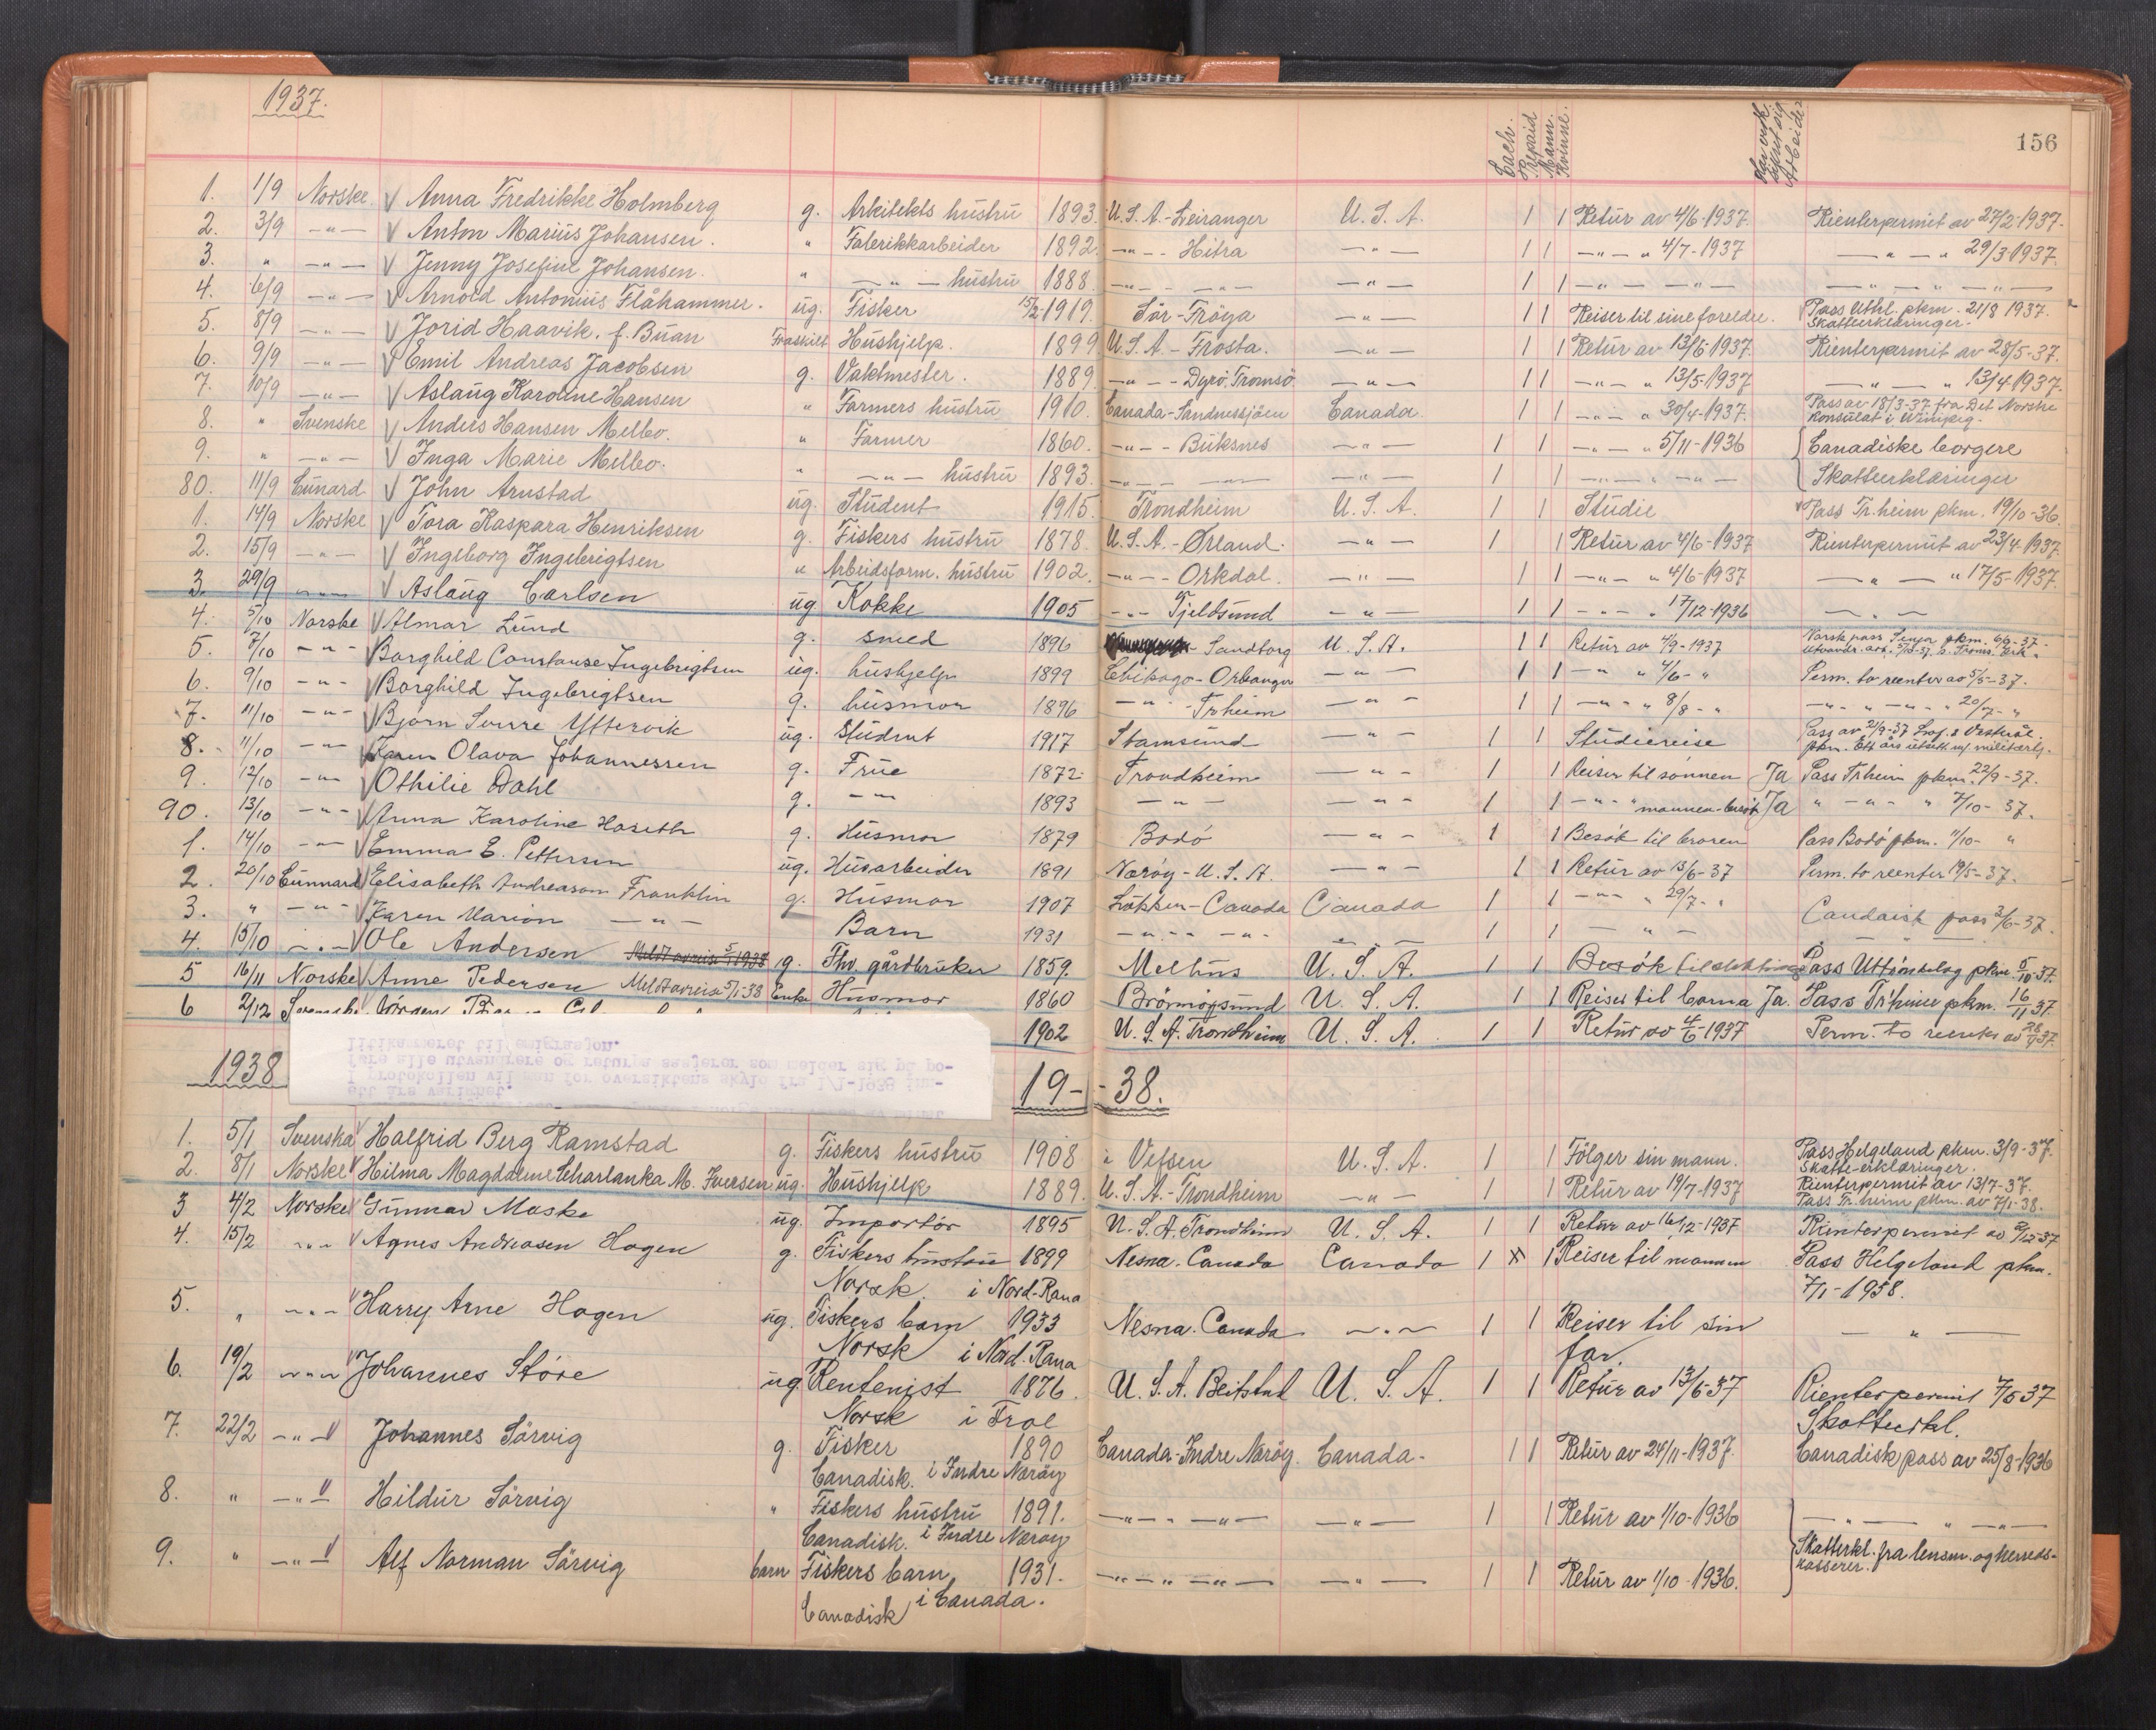 1937.
156
Prepaid Mann. Kvinne.
1. 1/9 Norske √ Anna Fredrikke Holmberg g. Arkitekts hustru 1893. U.S.A.-Leiranger U.S.A. 1 1 Retur av 4/6-1937. Rienterpermit av 27/2-1937.
2. 3/9 -"- √ Anton Marius Johansen. " Fabrikkarbeider 1892. -"- - Hitra -"- 1 1 -"- " 4/7-1937 -"- " 29/3-1937.
3. " -"- √ Jenny Josefine Johansen. " -"- hustru 1888. -"- -"- -"- 1 1 -"- -"- -"- " -"-
4. 6/9 -"- √ Arnold Antonius Flåhammer. ug. Fisker 15/2-1919. Sør-Frøya -"- 1 1 Reiser til sine foreldre. Pass Uthl. pkm. 21/8 1937. Skatteerklæringer.
5. 8/9 -"- √ Jorid Haavik. f. Buan Fraskilt Hushjelp. 1899 U.S.A - Frosta. -"- 1 1 Retur av 13/6-1937. Rienterpermit av 28/5-37.
6. 9/9 -"- √ Emil Andreas Jacobsen g. Vaktmester. 1889. -"- - Dyrö, Tromsö -"- 1 1 -"- " 13/5-1937 -"- " 13/4-1937.
7. 10/9 -"- √ Aslaug Karoline Hansen " Farmers hustru 1910. Canada-Sandnessjöen Canada 1 1 -"- " 30/4-1937. Pass av 18/3-37 fra Det Norske Konsulat i Winipeg.
8. " Svenske √ Anders Hansen Melbo. " Farmer 1860. -"- - Buksnes -"- 1 1 -"- " 5/11-1936 Canadiske borgere
9. " -"- √ Inga Marie Melbo. " -"- hustru 1893. -"- -"- -"- 1 1 -"- " -"- Skatteerklæringer
80. 11/9 Cunard √ John Arnstad ug. Student 1915. Trondheim U.S.A. 1 1 Studie Pass Tr.heim pkm. 19/10-36.
1. 14/9 Norske √ Tora Kaspara Henriksen g. Fiskers hustru 1878 U.S.A.-Ørland. -"- 1 1 Retur av 4/6-1937 Rienterpermit av 23/4-1937.
2. 15/9 -"- √ Ingeborg Ingebrigtsen " Arbeidsform. hustru 1902. -"- - Orkdal. -"- 1 1 -"- " 4/6-1937 -"- " 17/5-1937.
3. 29/9 -"- √ Aslaug Carlsen ug Kokke 1905 -"- Tjeldsund -"- 1 1 -"- " 17/12-1936 -"-
4. 5/10 Norske √ Almar Lund g. smed 1896 - Sandtorg U.S.A. 1 1 Retur av 4/9-1937 Norsk pass Senja pkm. 6/9-37.
5. 7/10 -"- √ Borghild Constanse Ingebrigtsen ug. hushjelp 1899 Chikago-Orkanger -"- 1 1 -"- " 4/6-" Perm. to reenter av 5/5-37.
6. 9/10 -"- √ Borghild Ingebrigtsen g. husmor 1896 -"- - Trheim -"- 1 1 -"- " 8/8-" -"- " -"- " 20/7-"
7. 11/10 -"- √ Bjørn Sverre Yttervik ug. Student 1917 Stamsund -"- 1 1 Studiereise Pass av 21/9-37 Lof. & Vesterål. pkm. Ett års utsett. m/ militærtj.
8. 11/10 -"- √ Karen Olava Johannessen g. Frue 1872 Trondheim -"- 1 1 Reiser til sønnen Ja Pass Trheim pkm. 22/9-37.
9. 12/10 -"- √ Othilie Dahl g. -"- 1893 -"- -"- 1 1 -"- " mannen-besök Ja " -"- " 7/10-37.
90. 13/10 -"- √ Anna Karoline Haseth g. Husmor 1879 Bodö -"- 1 1 Besök til broren Pass Bodö pkm. 11/10- "
1. 14/10 -"- √ Emma E. Pettersen ug. Husarbeider 1891 Nærøy-U.S.A. -"- 1 1 Retur av 13/6-37 Perm. to reenter 19/5-37.
2. 20/10 Cunnard √ Elisabeth Andreason Franklin g. Husmor 1907 Løkken-Canada Canada 1 1 -"- " 29/7-" Candaisk pass 2/6-37.
3. " -"- √ Karen Marion -"- Barn 1931 -"- -"- -"- 1 1 -"-
4. 15/10 -"- √ Ole Andersen Meldt avreise 5/1 1938 g. Fhv. gårdbruker 1859. Melhus U.S.A. 1 1 Besök til slektninger Pass Uttrøndelag pkm. 5/10-37.
5 16/11 Norske √ Anne Pedersen Meldt avreise 5/1-38 Enke Husmor 1860 Brömöysund U.S.A. 1 1 Reiser til barna Ja. Pass Tr'heim pkm. 16/11 37.
6 2/12 1902 U.S.A. Trondheim U.S.A. 1 1 Retur av 4/6-1937 Perm. to reenter av 28/4 37.
litikammeret til emigrasjon.
føre alle utvandrere og returpassasjerer som melder sig på po-
I protokollen vil man for oversiktens skyld fra 1/1-1938 inn-
ett års varighet.
1938 19--38.
1. 5/1 Svenska √ Halfrid Berg Ramstad g. Fiskers hustru 1908 i Vefsen U.S.A. 1 1 Følger sin mann. Pass Helgeland pkm. 3/9-37. Skatte-erklæringer.
2. 8/1 Norske √ Hilma Magdalene Scharlanka M. Iversen ug. Hushjelp 1889. U.S.A.-Trondheim -"- 1 1 Retur av 19/7-1937 Rienterpermit av 13/7-37. Pass Tr.heim pkm. av 7/1-38.
3 4/2 Norske √ Gunnar Moske ug. Importör 1895 U.S.A. Trondheim U.S.A. 1 1 Retur av 16/12-1937 Rienterpermit av 2/12-37
4. 15/2 -"- √ Agnes Andreasen Hagen g. Fiskers hustru 1899 Nesna. Canada Canada 1 x 1 Reiser til mannen Pass Helgeland pkm.
Norsk. i Nord-Rana 7/1-1938.
5. " -"- √ Harry Arne Hagen ug. Fiskers barn 1933 Nesna. Canada -"- 1 1 Reiser til sin -"-
Norsk i Nord. Rana far.
6. 19/2 -"- √ Johannes Støre ug. Rentenist 1876. U.S.A. Beitstad U.S.A. 1 1 Retur av 13/6-37 Rienterpermit 7/5 37
Norsk i Skatteerkl.
7. 22/2 -"- √ Johannes Sörvig g. Fisker 1890 Canada-Indre Næröy. Canada. 1 1 Retur av 24/11-1937. Canadisk pass av 25/8-1936
Canadisk. i Indre Næröy
8. " -"- √ Hildur Sörvig " Fiskers hustru 1891. -"- " -"- -"- 1 1 Retur av 1/10-1936 -"- " -"-
Canadisk. i Indre Næröy
9. " -"- √ Alf Norman Sörvig barn Fiskers barn 1931. -"- " -"- -"- 1 1 Retur av 1/10-1936. Skatterkl. fra lensm. og herreds-kasserer.
Canadisk i Canada.